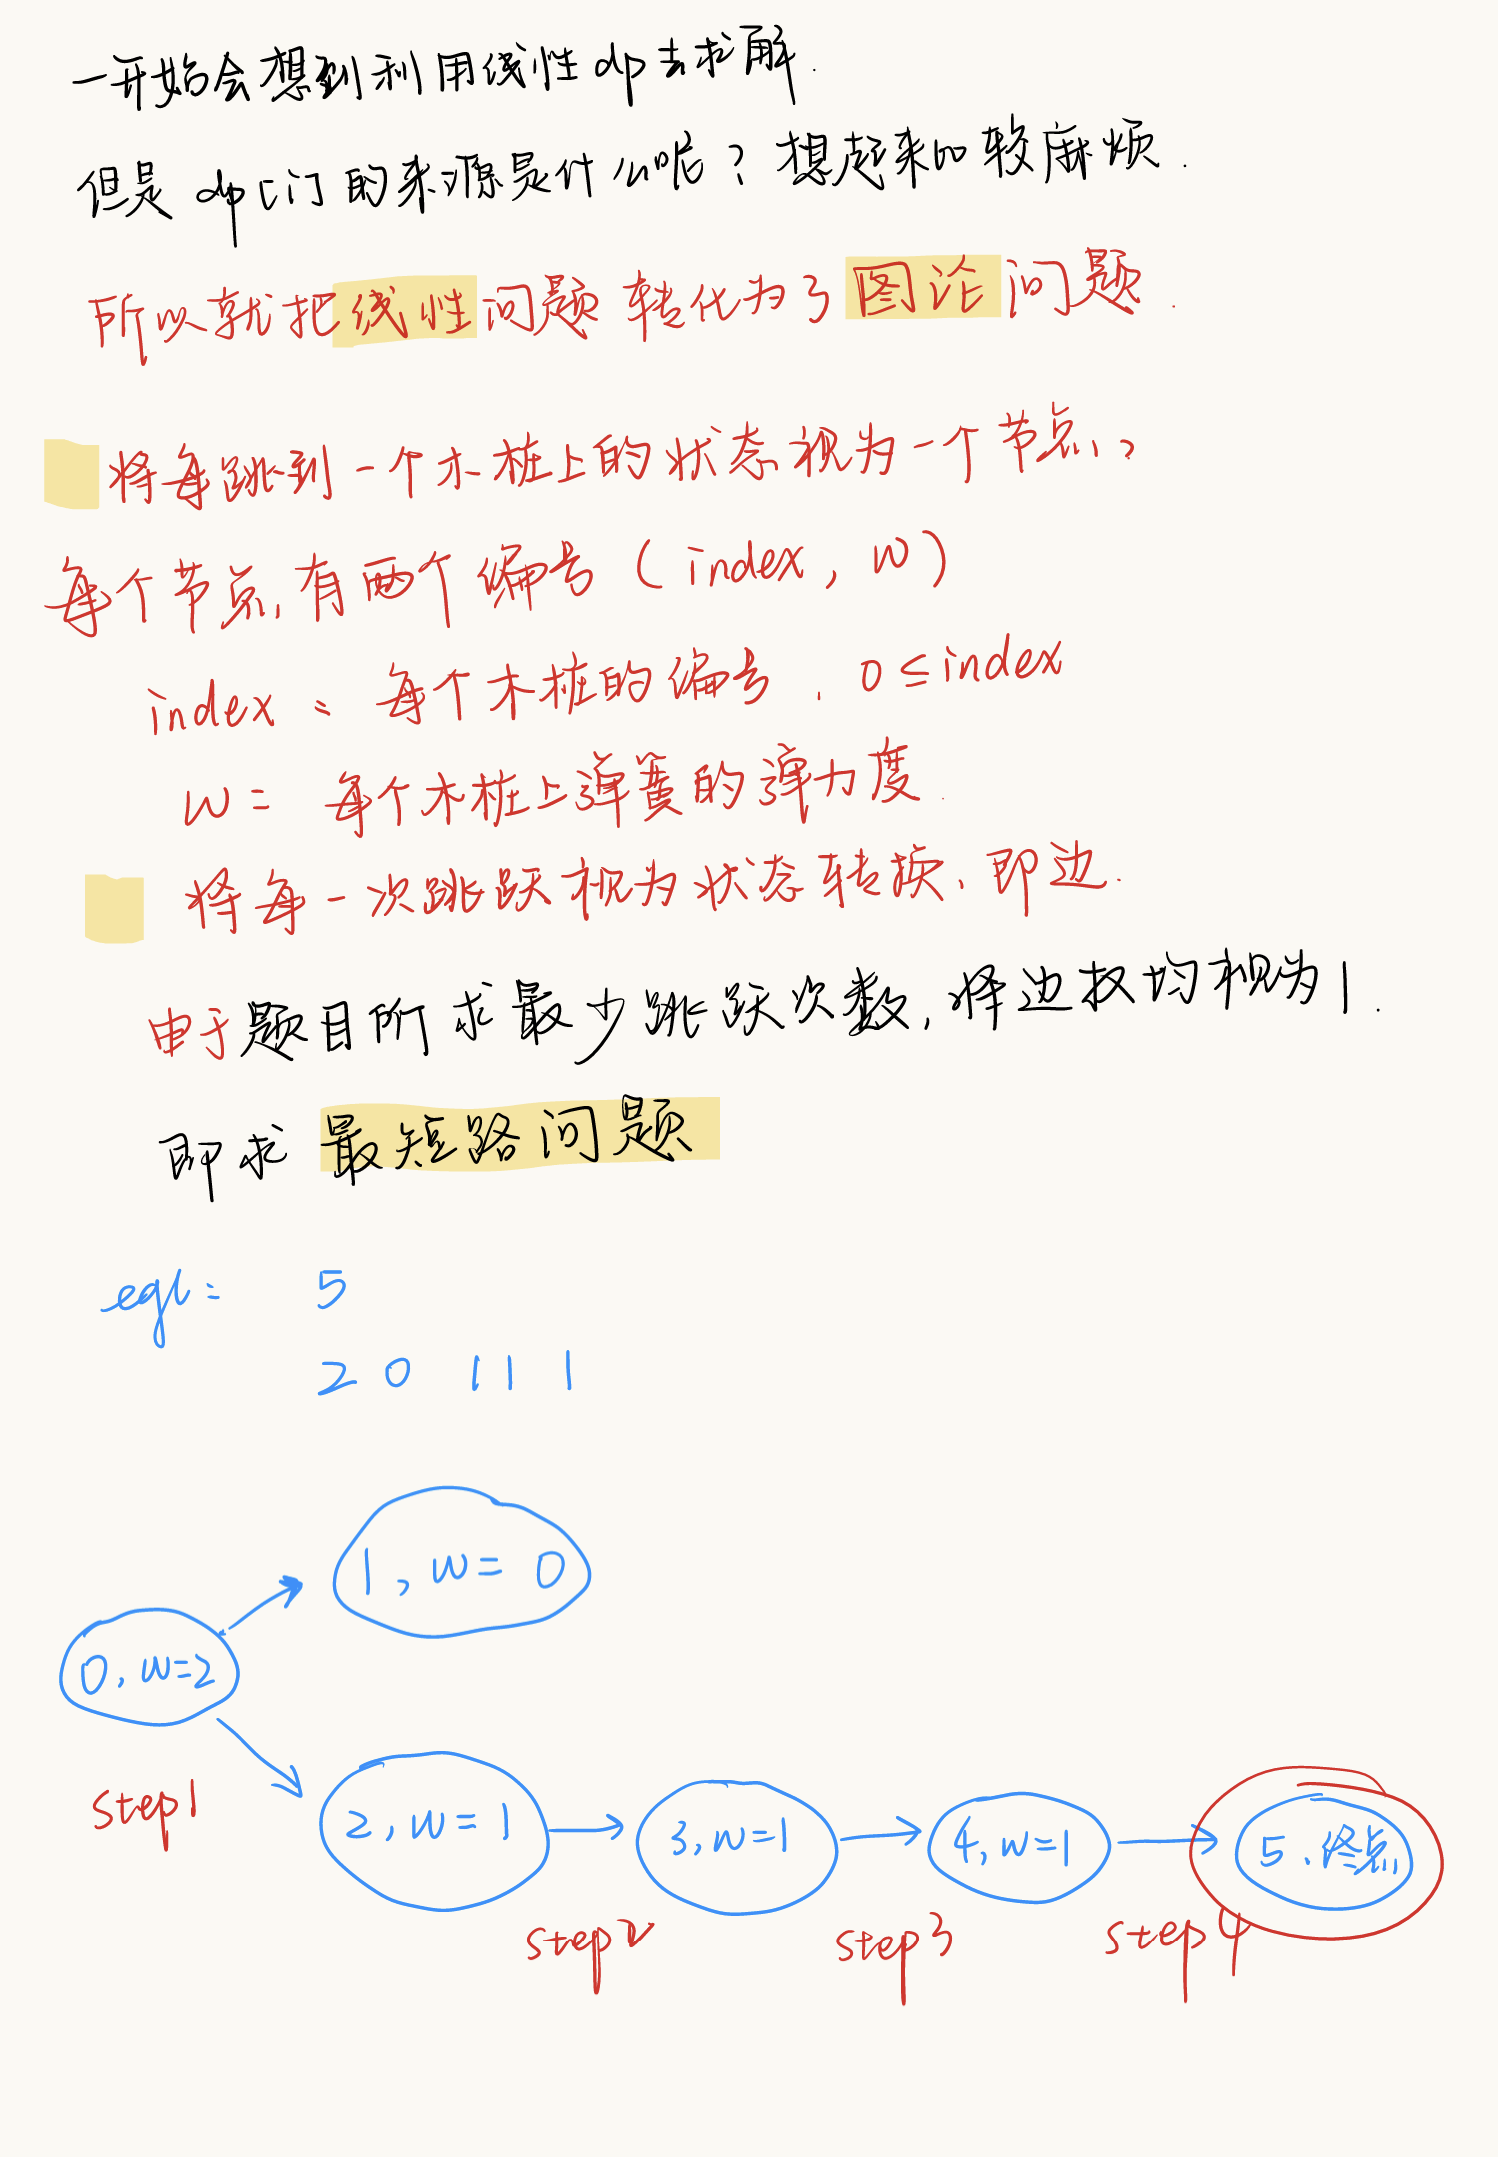 一开始会想到利用线性dp去求解.
但是dp[i]的来源是什么呢?想起来比较麻烦.
所以就把线性问题转化为了图论问题.
将每跳到一个木桩上的状态视为一个节点,
每个节点,有两个编号(index, w)
index: 每个木桩的编号, 0≤index
w= 每个木桩上弹簧的弹力度.
将每一次跳跃视为状态转换,即边.
由于题目所求最少跳跃次数,将边权均视为1.
即求 最短路问题
eg1: 5
2 0 1 1 1
1, w= 0
0, w=2
step1
2, w=1
3, w=1
4, w=1
5、终点
step2
step3
step4